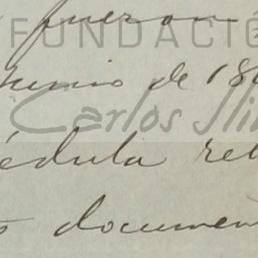 fueron
FUNDACIÓ
Junio de 18
Carlos Sli
édula re
documen